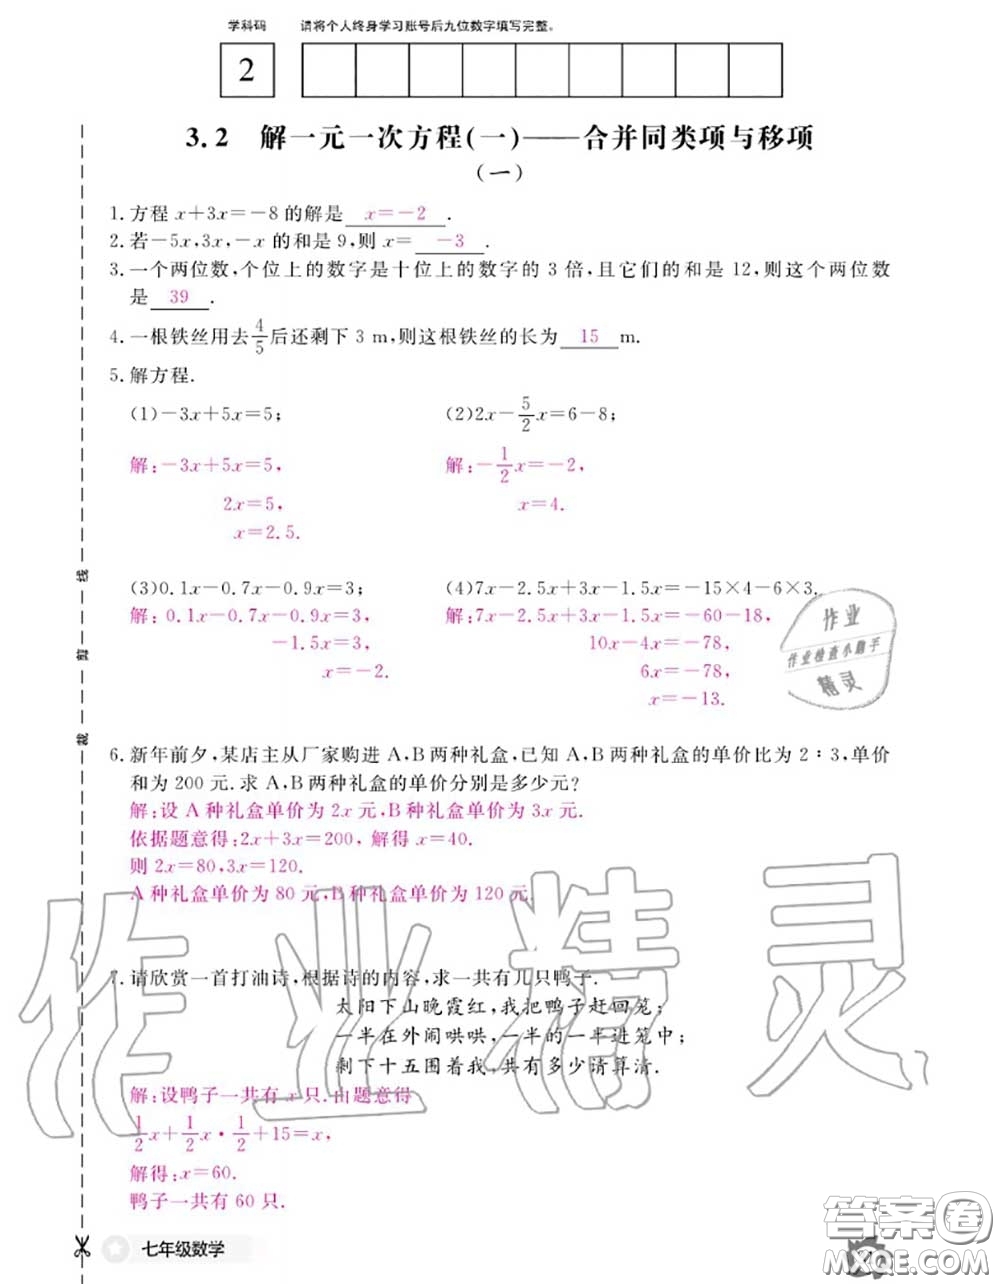 学科码 请将个人终身学习账号后九位数字填写完整。
2
3.2 解一元一次方程(一)——合并同类项与移项
(一)
1.方程 x+3x=-8 的解是 x=-2 .
2.若-5x,3x,-x 的和是 9,则 x= -3 .
3.一个两位数,个位上的数字是十位上的数字的 3 倍,且它们的和是 12,则这个两位数
是 39 .
4.一根铁丝用去4/5后还剩下 3 m,则这根铁丝的长为 15 m.
5.解方程.
(1)-3x+5x=5; (2)2x-5/2x=6-8;
解:-3x+5x=5, 解:-1/2x=-2,
2x=5, x=4.
x=2.5.
(3)0.1x-0.7x-0.9x=3; (4)7x-2.5x+3x-1.5x=-15×4-6×3.
解:0.1x-0.7x-0.9x=3, 解:7x-2.5x+3x-1.5x=-60-18,
-1.5x=3, 10x-4x=-78,
x=-2. 6x=-78,
x=-13.
6.新年前夕,某店主从厂家购进 A,B两种礼盒,已知 A,B两种礼盒的单价比为 2∶3,单价
和为 200 元.求 A,B两种礼盒的单价分别是多少元?
解:设 A 种礼盒单价为 2x 元,B种礼盒单价为 3x 元.
依据题意得:2x+3x=200,解得 x=40.
则 2x=80,3x=120.
A 种礼盒单价为 80 元,B种礼盒单价为 120 元.
7.请欣赏一首打油诗,根据诗的内容,求一共有几只鸭子.
太阳下山晚霞红,我把鸭子赶回笼;
一半在外闹哄哄,一半的一半进笼中;
剩下十五围着我,共有多少请算清.
解:设鸭子一共有 x 只.由题意得
1/2x+1/2x·1/2+15=x,
解得:x=60.
鸭子一共有 60 只.
线
剪
裁
七年级数学
作业
作业检查小助手
精灵
作业精灵
答案圈